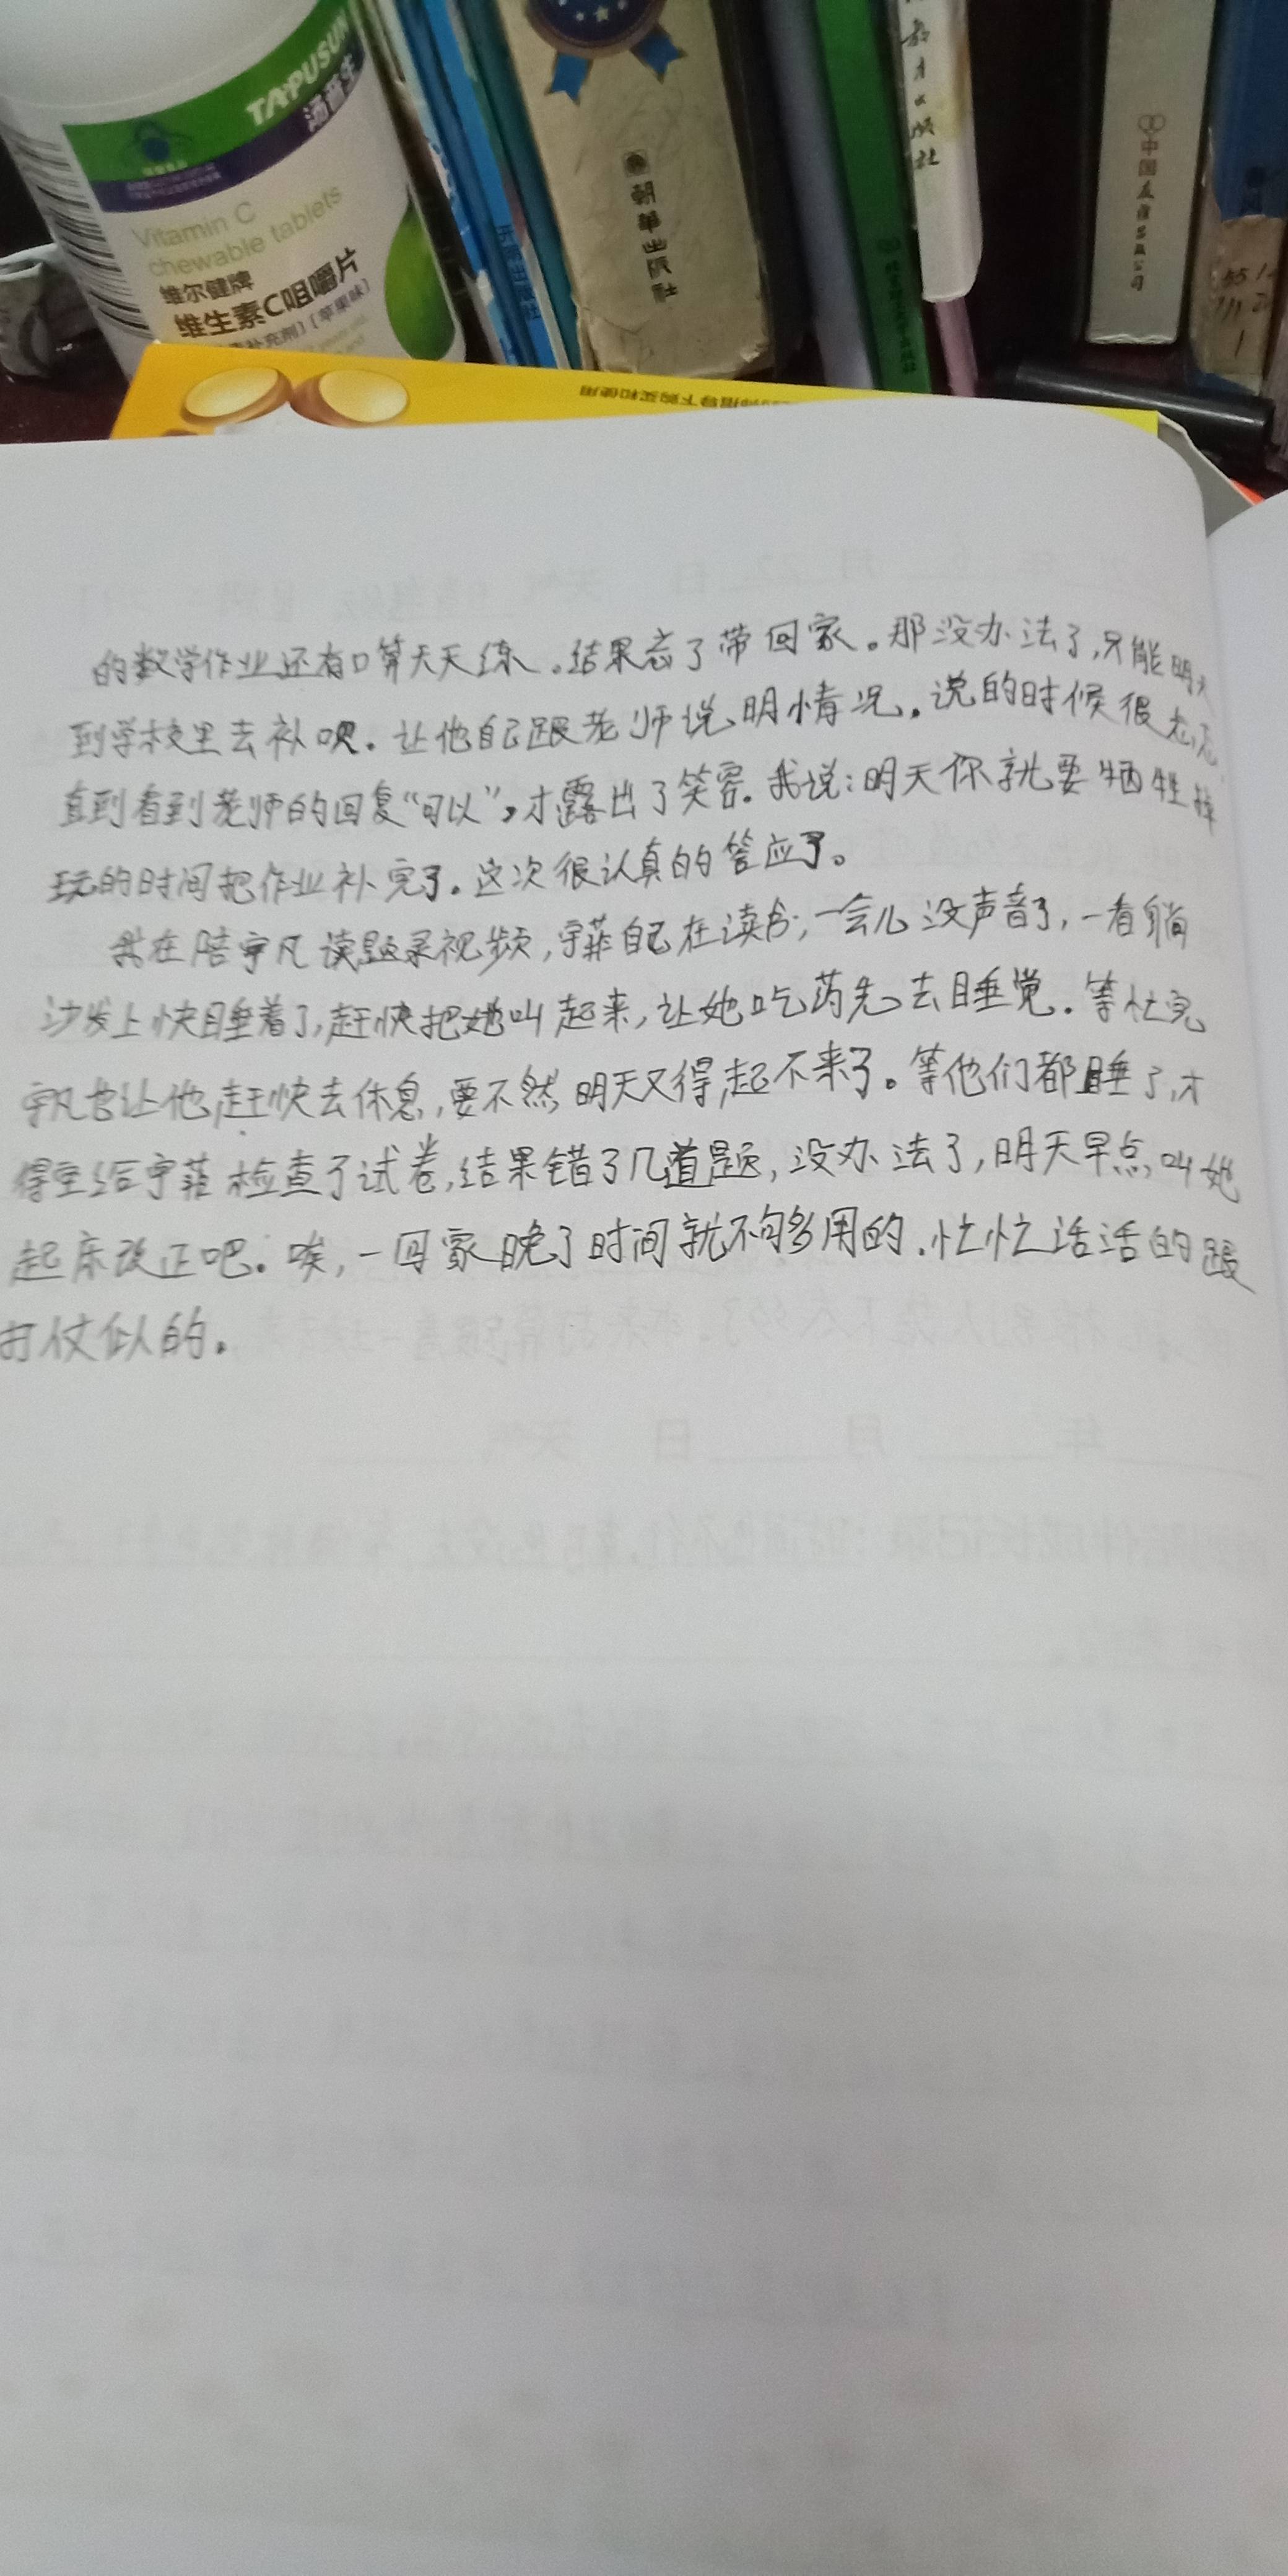 TAPUSUN
汤普生
Vitamin C
chewable tablets
维尔健牌
维生素C咀嚼片
朝華出版社
中国友谊出版公司
的数学作业还有口算天天练。结果忘了带回家。那没办法了,只能明天
到学校里去补呗。让他自己跟老师说明情况。说的时候很忐忑,
直到看到老师的回复“可以”,才露出了笑容。我说:明天你就要牺牲掉
玩的时间把作业补完了。这次很认真的答应了。
我在陪宇凡读题录视频,宇菲自己在读书,一会儿没声音了,一看躺
沙发上快睡着了,赶快把她叫起来,让她吃药先去睡觉。等忙完
宇凡也让他赶快去休息,要不然明天又得起不来了。等他们都睡了,才
得空给宇菲检查了试卷,结果错了几道题,没办法了,明天早点叫她
起床改正吧。唉,一回家晚了时间就不够多用的,忙忙活活的跟
打仗似的。